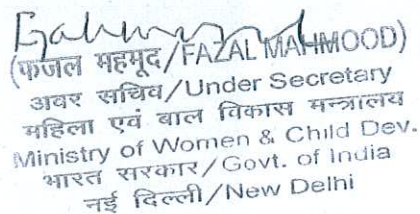 (फजल महमूद/FAZAL MAHMOOD)
अवर सचिव/Under Secretary
महिला एवं बाल विकास मन्त्रालय
Ministry of Women & Child Dev.
भारत सरकार/Govt. of India
नई दिल्ली/New Delhi